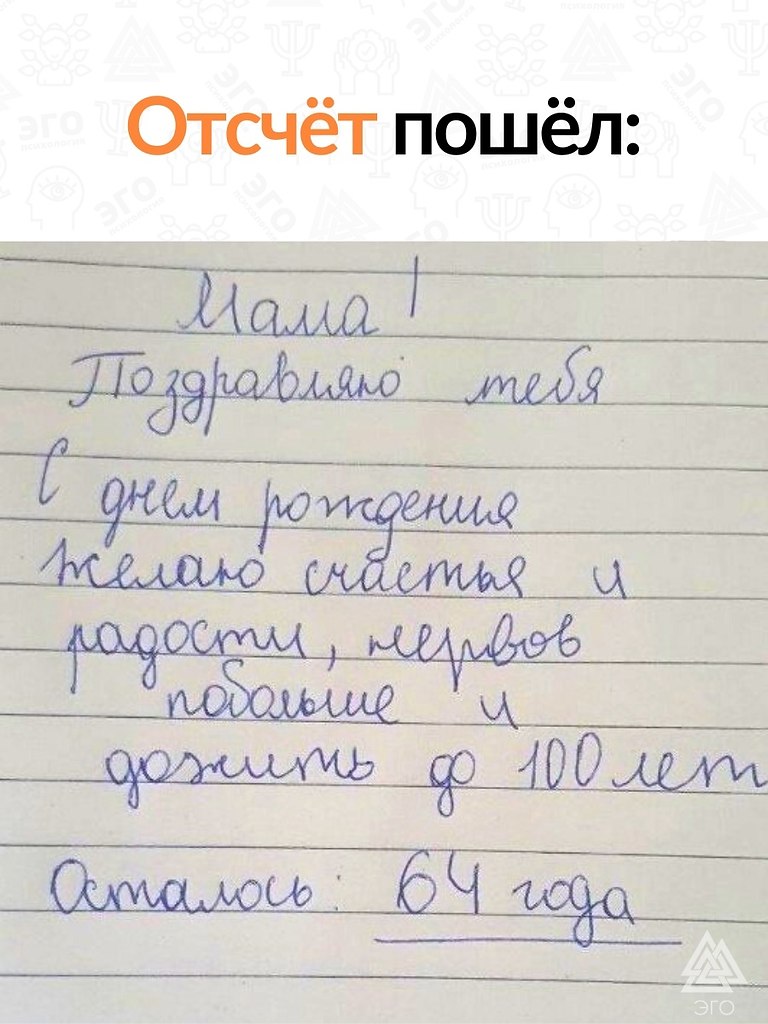 Отсчёт пошёл:
Мама!
Поздравляю тебя
С днем рождения
желаю счастья и
радости, нервов
побольше и
дожить до 100 лет
Осталось: 64 года
ЭГО